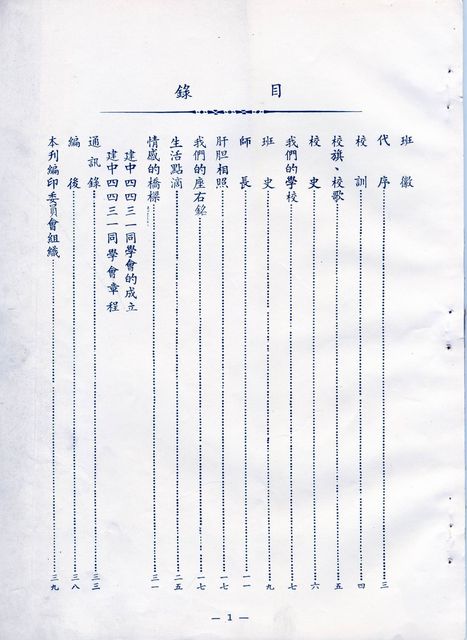 目錄
班徽
代序……三
校訓……四
校旗、校歌……五
校史……六
我們的學校……七
班史……九
師長……一一
肝胆相照……一七
我們的座右銘……一七
生活點滴……二五
情感的橋樑……三一
建中四四三一同學會的成立
建中四四三一同學會章程
通訊錄……三三
編後……三八
本刊編印委員會組織……三九
— 1 —